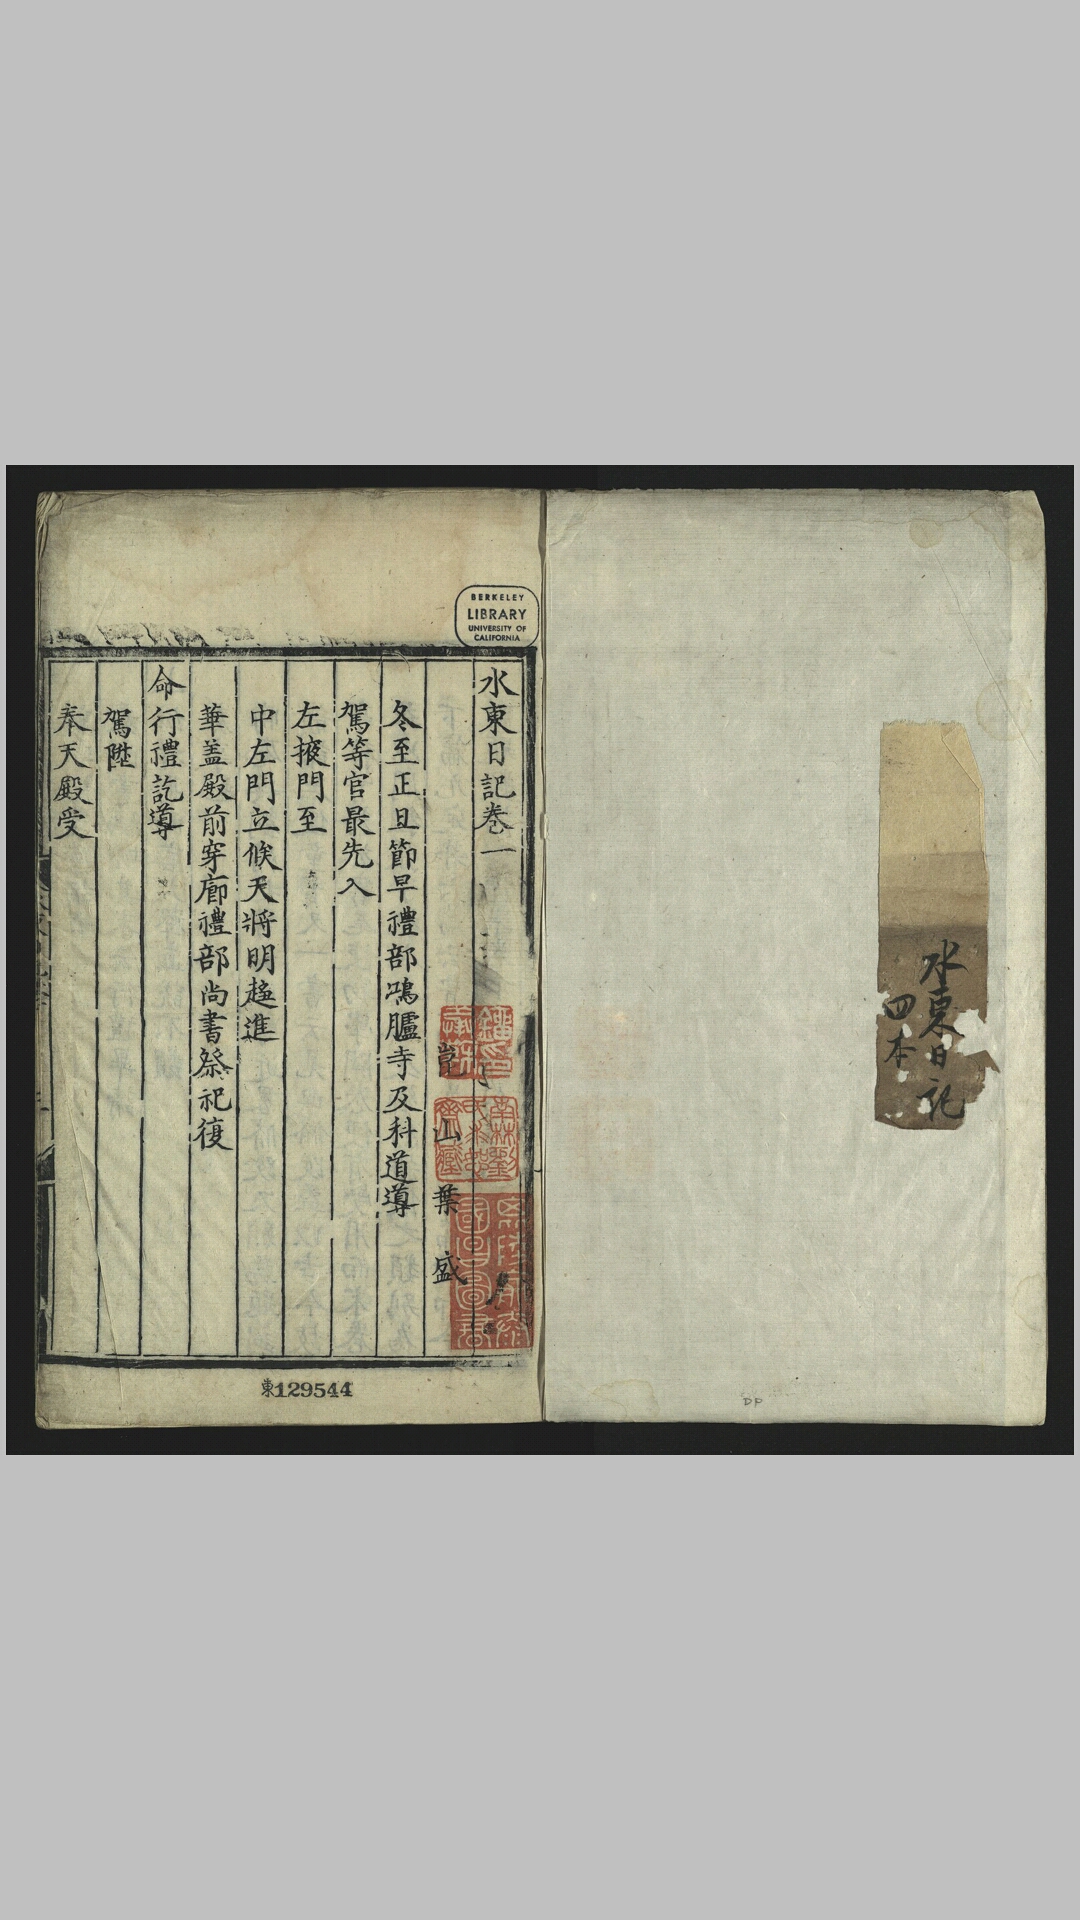 水東日記
四本
BERKELEY
LIBRARY
UNIVERSITY OF
CALIFORNIA
水東日記卷一
崑山葉盛
冬至正旦節早禮部鴻臚寺及科道導
駕等官最先入
左掖門至
中左門立候天將明趍進
華盖殿前穿廊禮部尚書祭祀復
命行禮訖導
駕陞
奉天殿受
東129544
DP